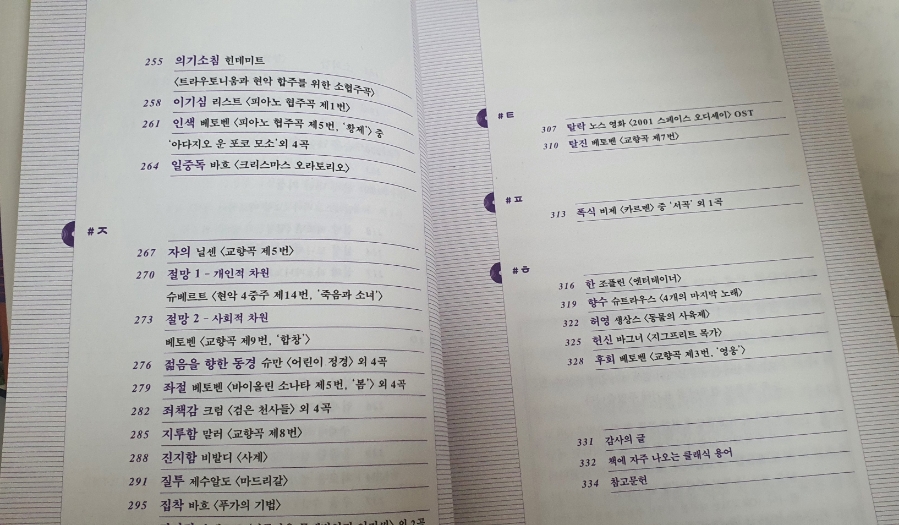 255 의기소침 힌데미트
〈트라우토니움과 현악 합주를 위한 소협주곡〉
258 이기심 리스트 〈피아노 협주곡 제1번〉
261 인색 베토벤 〈피아노 협주곡 제5번, '황제'〉 중
'아다지오 운 포코 모소' 외 4곡
264 일중독 바흐 〈크리스마스 오라토리오〉
#ㅈ
267 자의 닐센 〈교향곡 제5번〉
270 절망 1 - 개인적 차원
슈베르트 〈현악 4중주 제14번, '죽음과 소녀'〉
273 절망 2 - 사회적 차원
베토벤 〈교향곡 제9번, '합창'〉
276 젊음을 향한 동경 슈만 〈어린이 정경〉 외 4곡
279 좌절 베토벤 〈바이올린 소나타 제5번, '봄'〉 외 4곡
282 죄책감 크럼 〈검은 천사들〉 외 4곡
285 지루함 말러 〈교향곡 제8번〉
288 진지함 비발디 〈사계〉
291 질투 제수알도 〈마드리갈〉
295 집착 바흐 〈푸가의 기법〉
외 2곡
#ㅌ
307 탈락 노스 영화 〈2001 스페이스 오디세이〉 OST
310 탈진 베토벤 〈교향곡 제7번〉
#ㅍ
313 폭식 비제 〈카르멘〉 중 '서곡' 외 1곡
#ㅎ
316 한 조플린 〈엔터테이너〉
319 향수 슈트라우스 〈4개의 마지막 노래〉
322 허영 생상스 〈동물의 사육제〉
325 헌신 바그너 〈지그프리트 목가〉
328 후회 베토벤 〈교향곡 제3번, '영웅'〉
331 감사의 글
332 책에 자주 나오는 클래식 용어
334 참고문헌